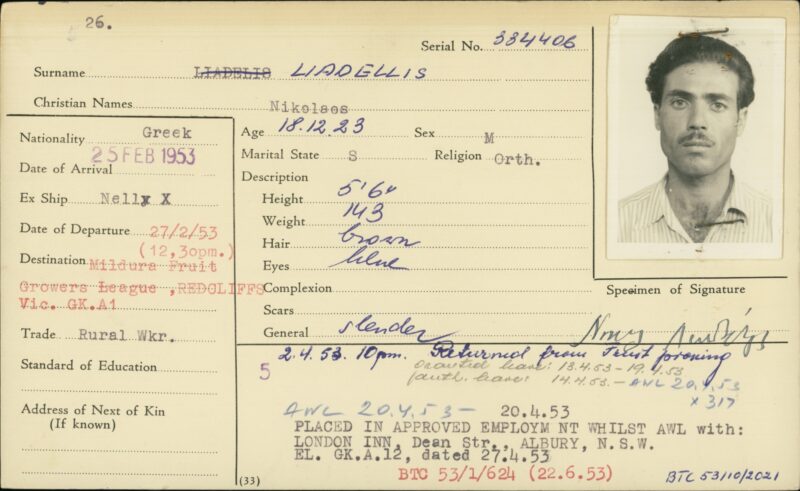 26.
Serial No. 334406
Surname LIADELIS LIADELLIS
Christian Names Nikolaos
Nationality Greek
Age 18.12.23 Sex M
Date of Arrival 25 FEB 1953
Marital State S Religion Orth.
Description
Ex Ship Nelly X
Height 5'6"
Weight 143
Date of Departure 27/2/53
(12,30pm.)
Hair brown
Destination Mildura Fruit
Eyes blue
Growers League ,REDCLIFFS
Complexion
Specimen of Signature
Vic. GK.A1
Scars
Trade Rural Wkr.
General slender
2.4.53. 10pm. Returned from Fruit
5
Granted leave: 13.4.53 - 19.4.53
leave: 14.4.53. - AWL 20.4.53
x 317
Standard of Education
Address of Next of Kin
(If known)
AWL 20.4.53 - 20.4.53
PLACED IN APPROVED EMPLOYM NT WHILST AWL with:
LONDON INN, Dean Str., ALBURY, N.S.W.
EL. GK.A.12, dated 27.4.53
BTC 53/1/624 (22.6.53)
BTC 53/10/2021
(33)